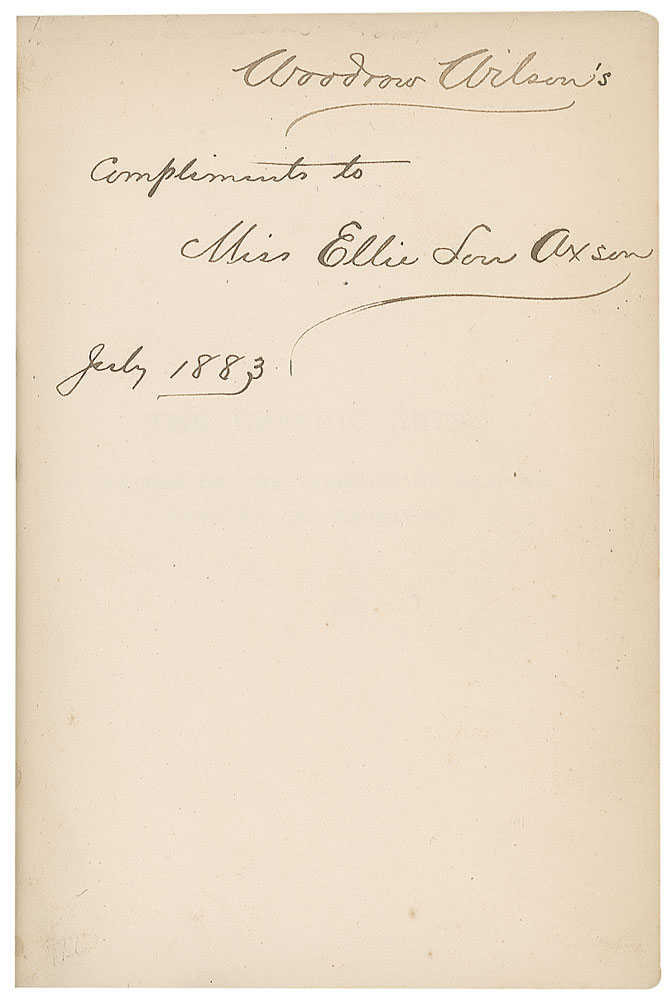 Woodrow Wilson's
Compliments to
Miss Ellie Lou Axson
July 1883